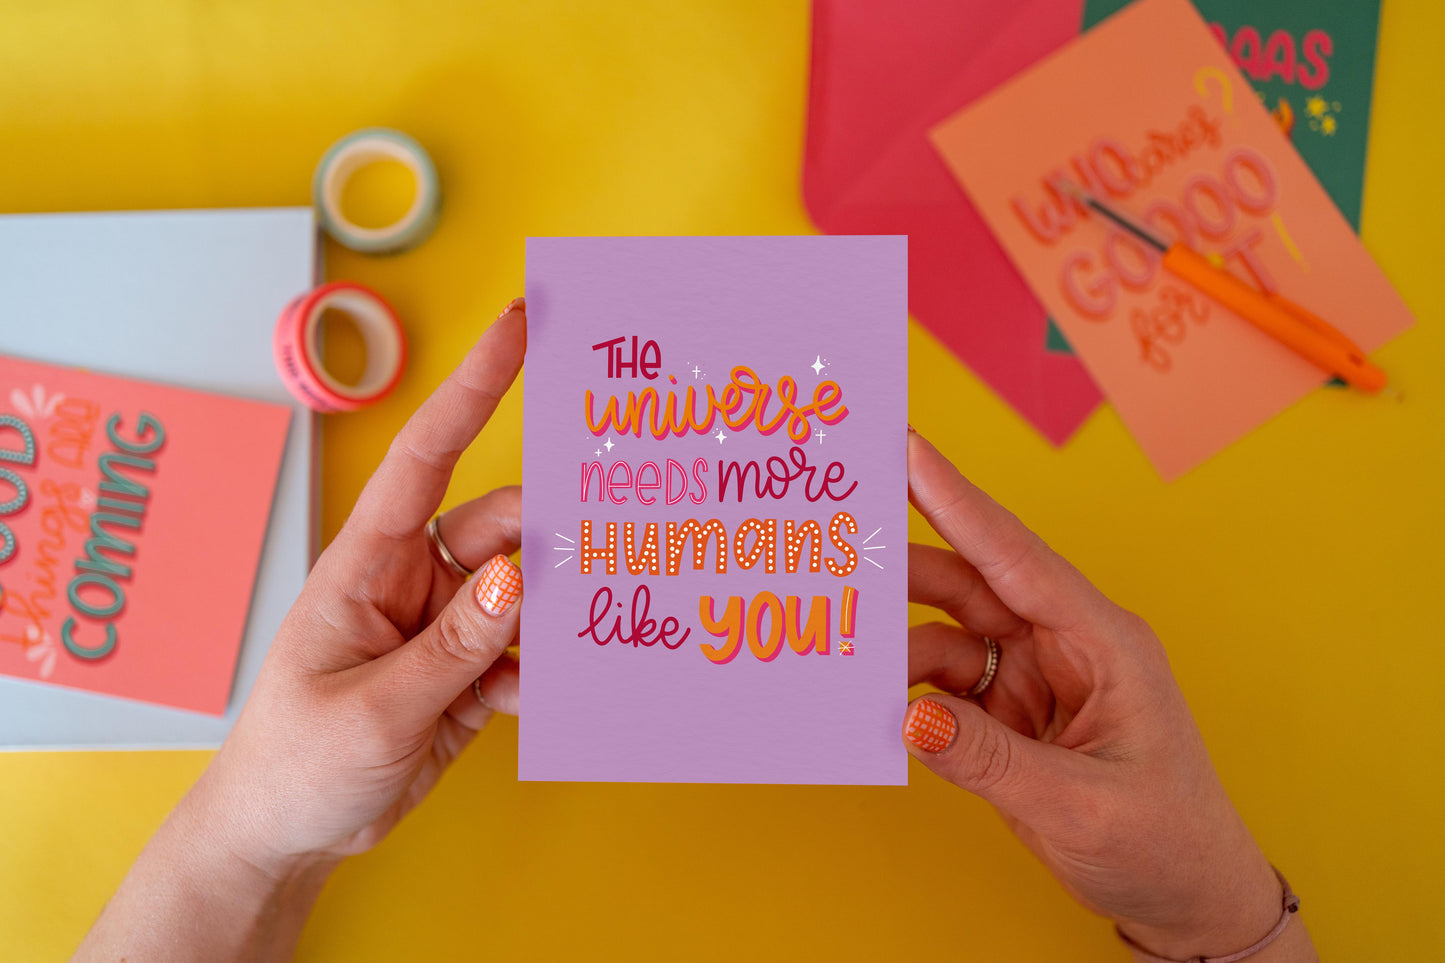 THE
universe
NEEDS more
HUMANS
like YOU!
GOOD
things ARE
COMING
WHO cares?
GOOOO
for IT!
AAAS